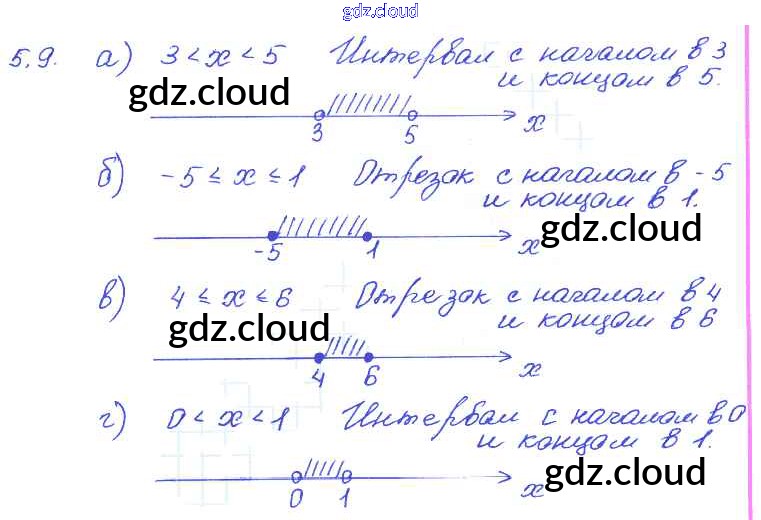 gdz.cloud
5.9. а) 3 < x < 5 Интервал с началом в 3
и концом в 5.
gdz.cloud
3 5 x
б) -5 ≤ x ≤ 1 Отрезок с началом в -5
и концом в 1.
gdz.cloud
-5 1 x
в) 4 ≤ x ≤ 6 Отрезок с началом в 4
и концом в 6
gdz.cloud
4 6 x
г) 0 < x < 1 Интервал с началом в 0
и концом в 1.
gdz.cloud
0 1 x